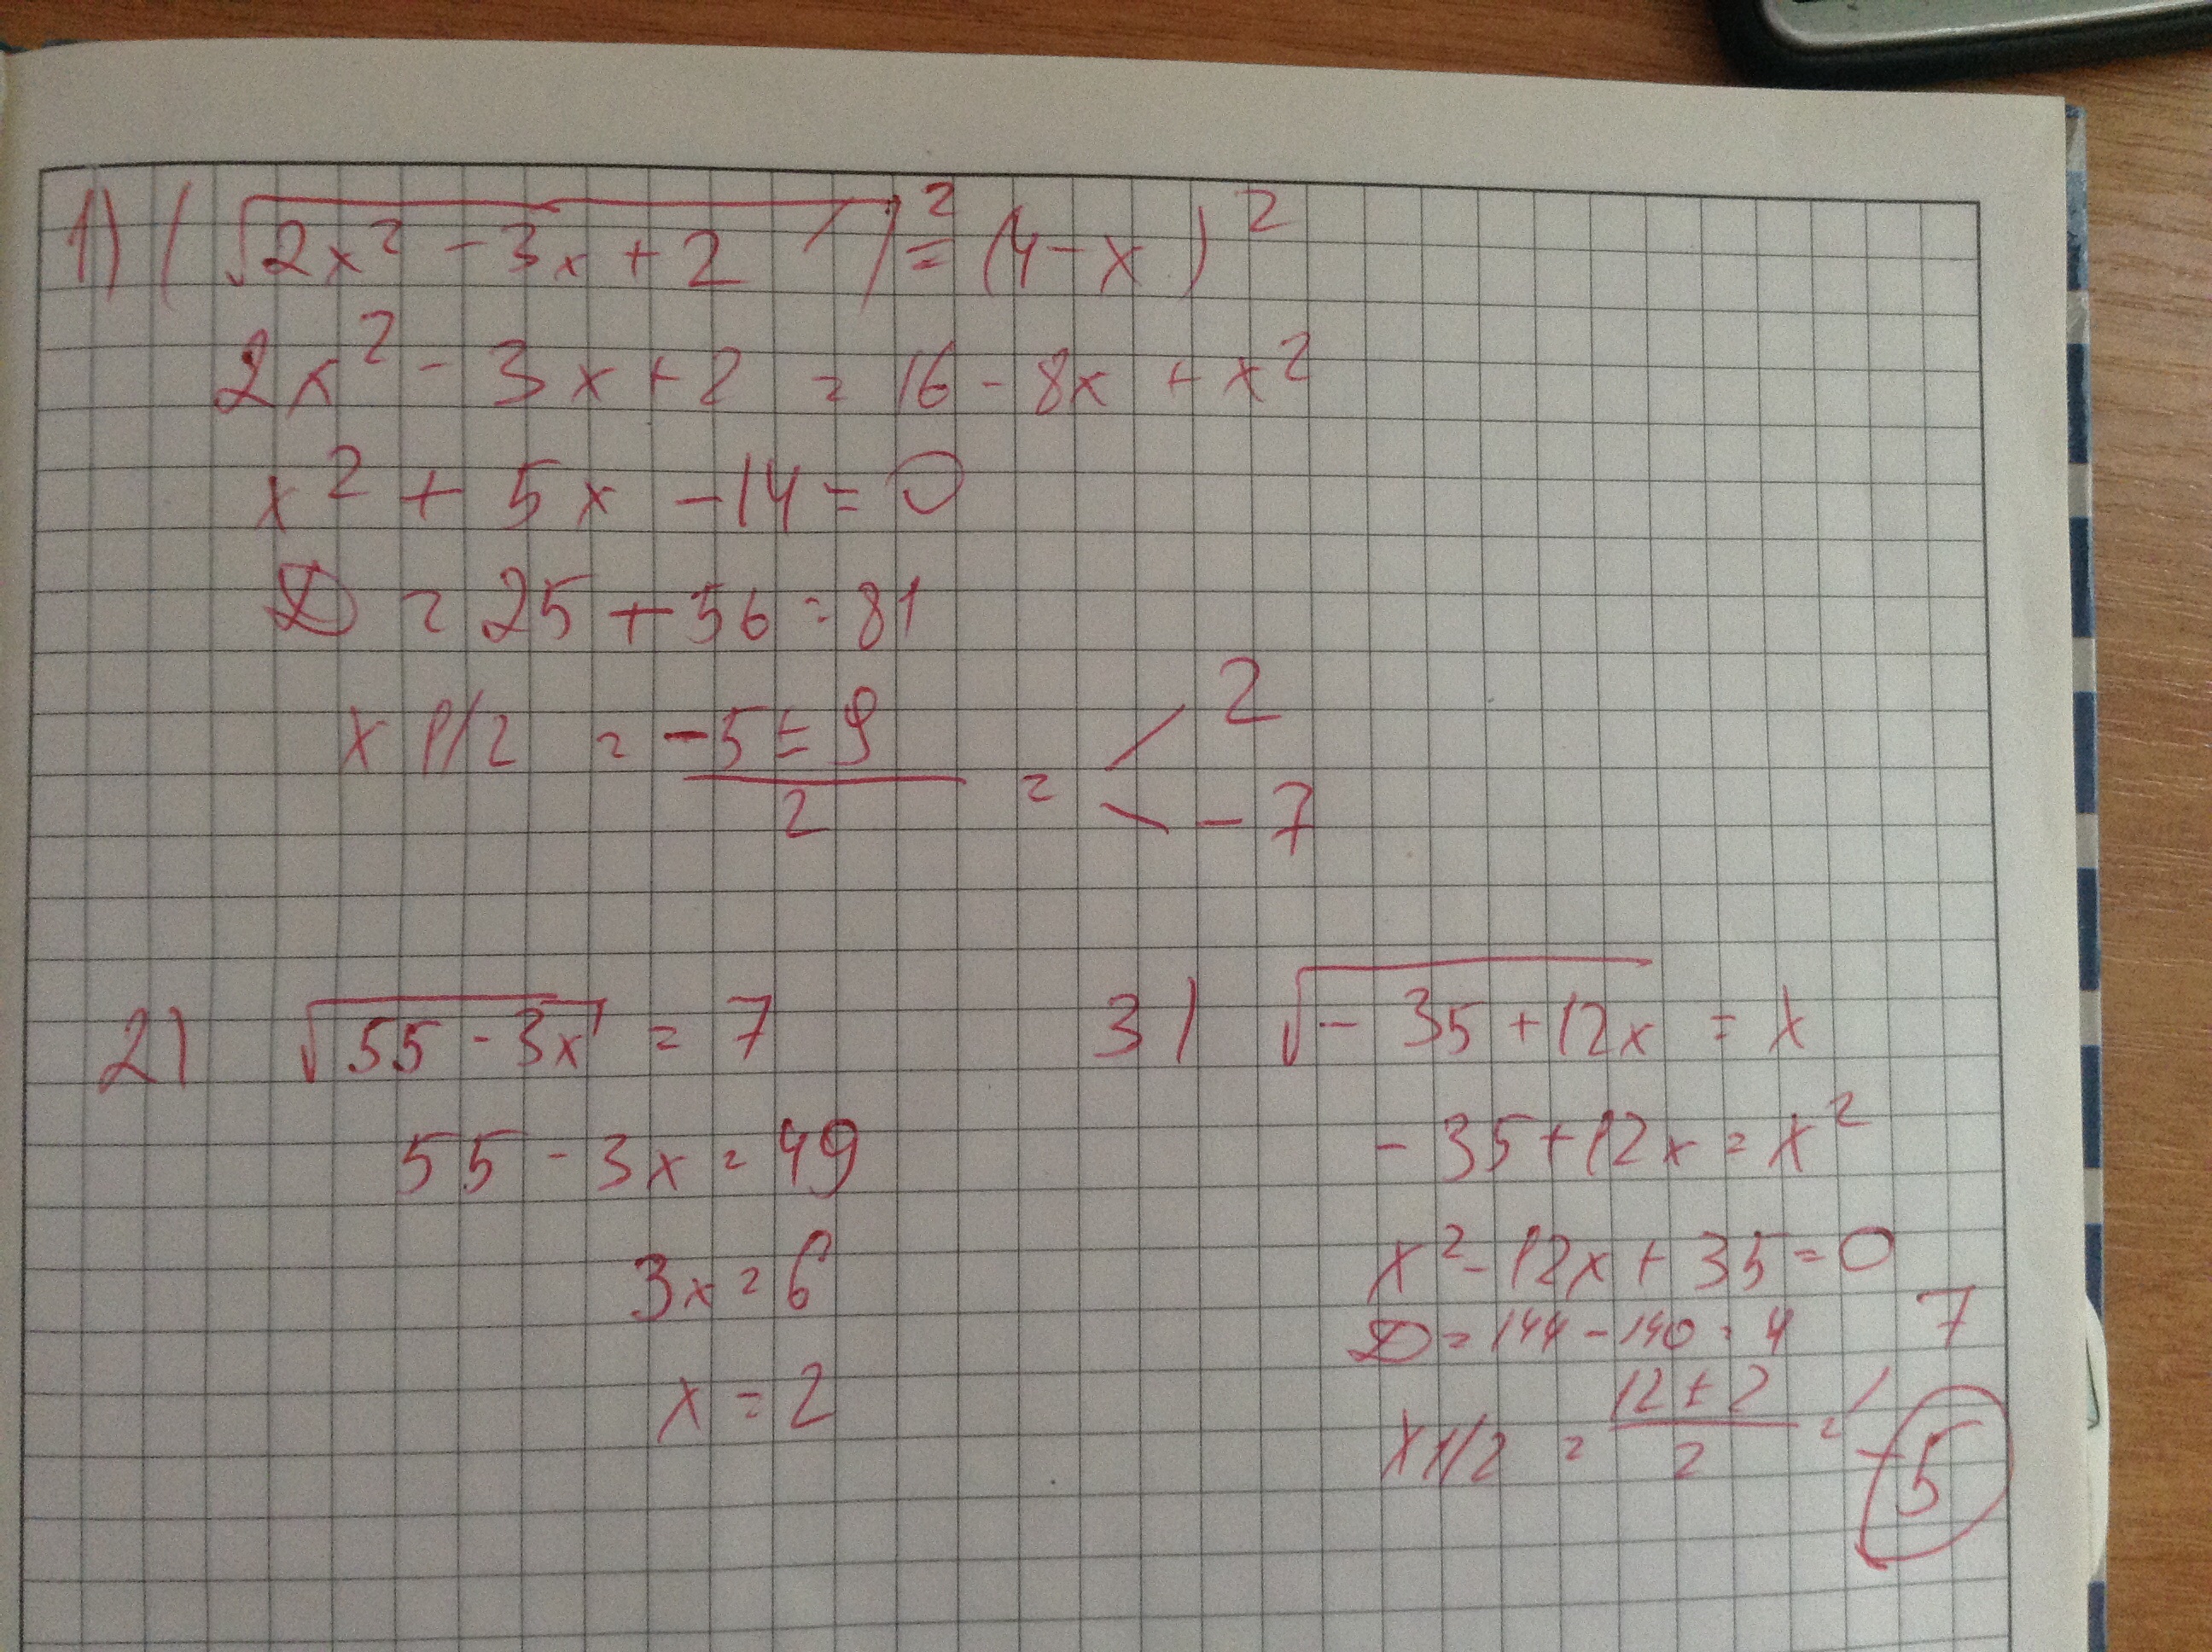 1) (√2x² - 3x + 2)² = (4 - x)²
2x² - 3x + 2 = 16 - 8x + x²
x² + 5x - 14 = 0
D = 25 + 56 = 81
x 1/2 = (-5 ± 9)/2 = 2
-7
2) √55 - 3x = 7
55 - 3x = 49
3x = 6
x = 2
3) √-35 + 12x = x
-35 + 12x = x²
x² - 12x + 35 = 0
D = 144 - 140 = 4
x 1/2 = (12 ± 2)/2 = 7
5